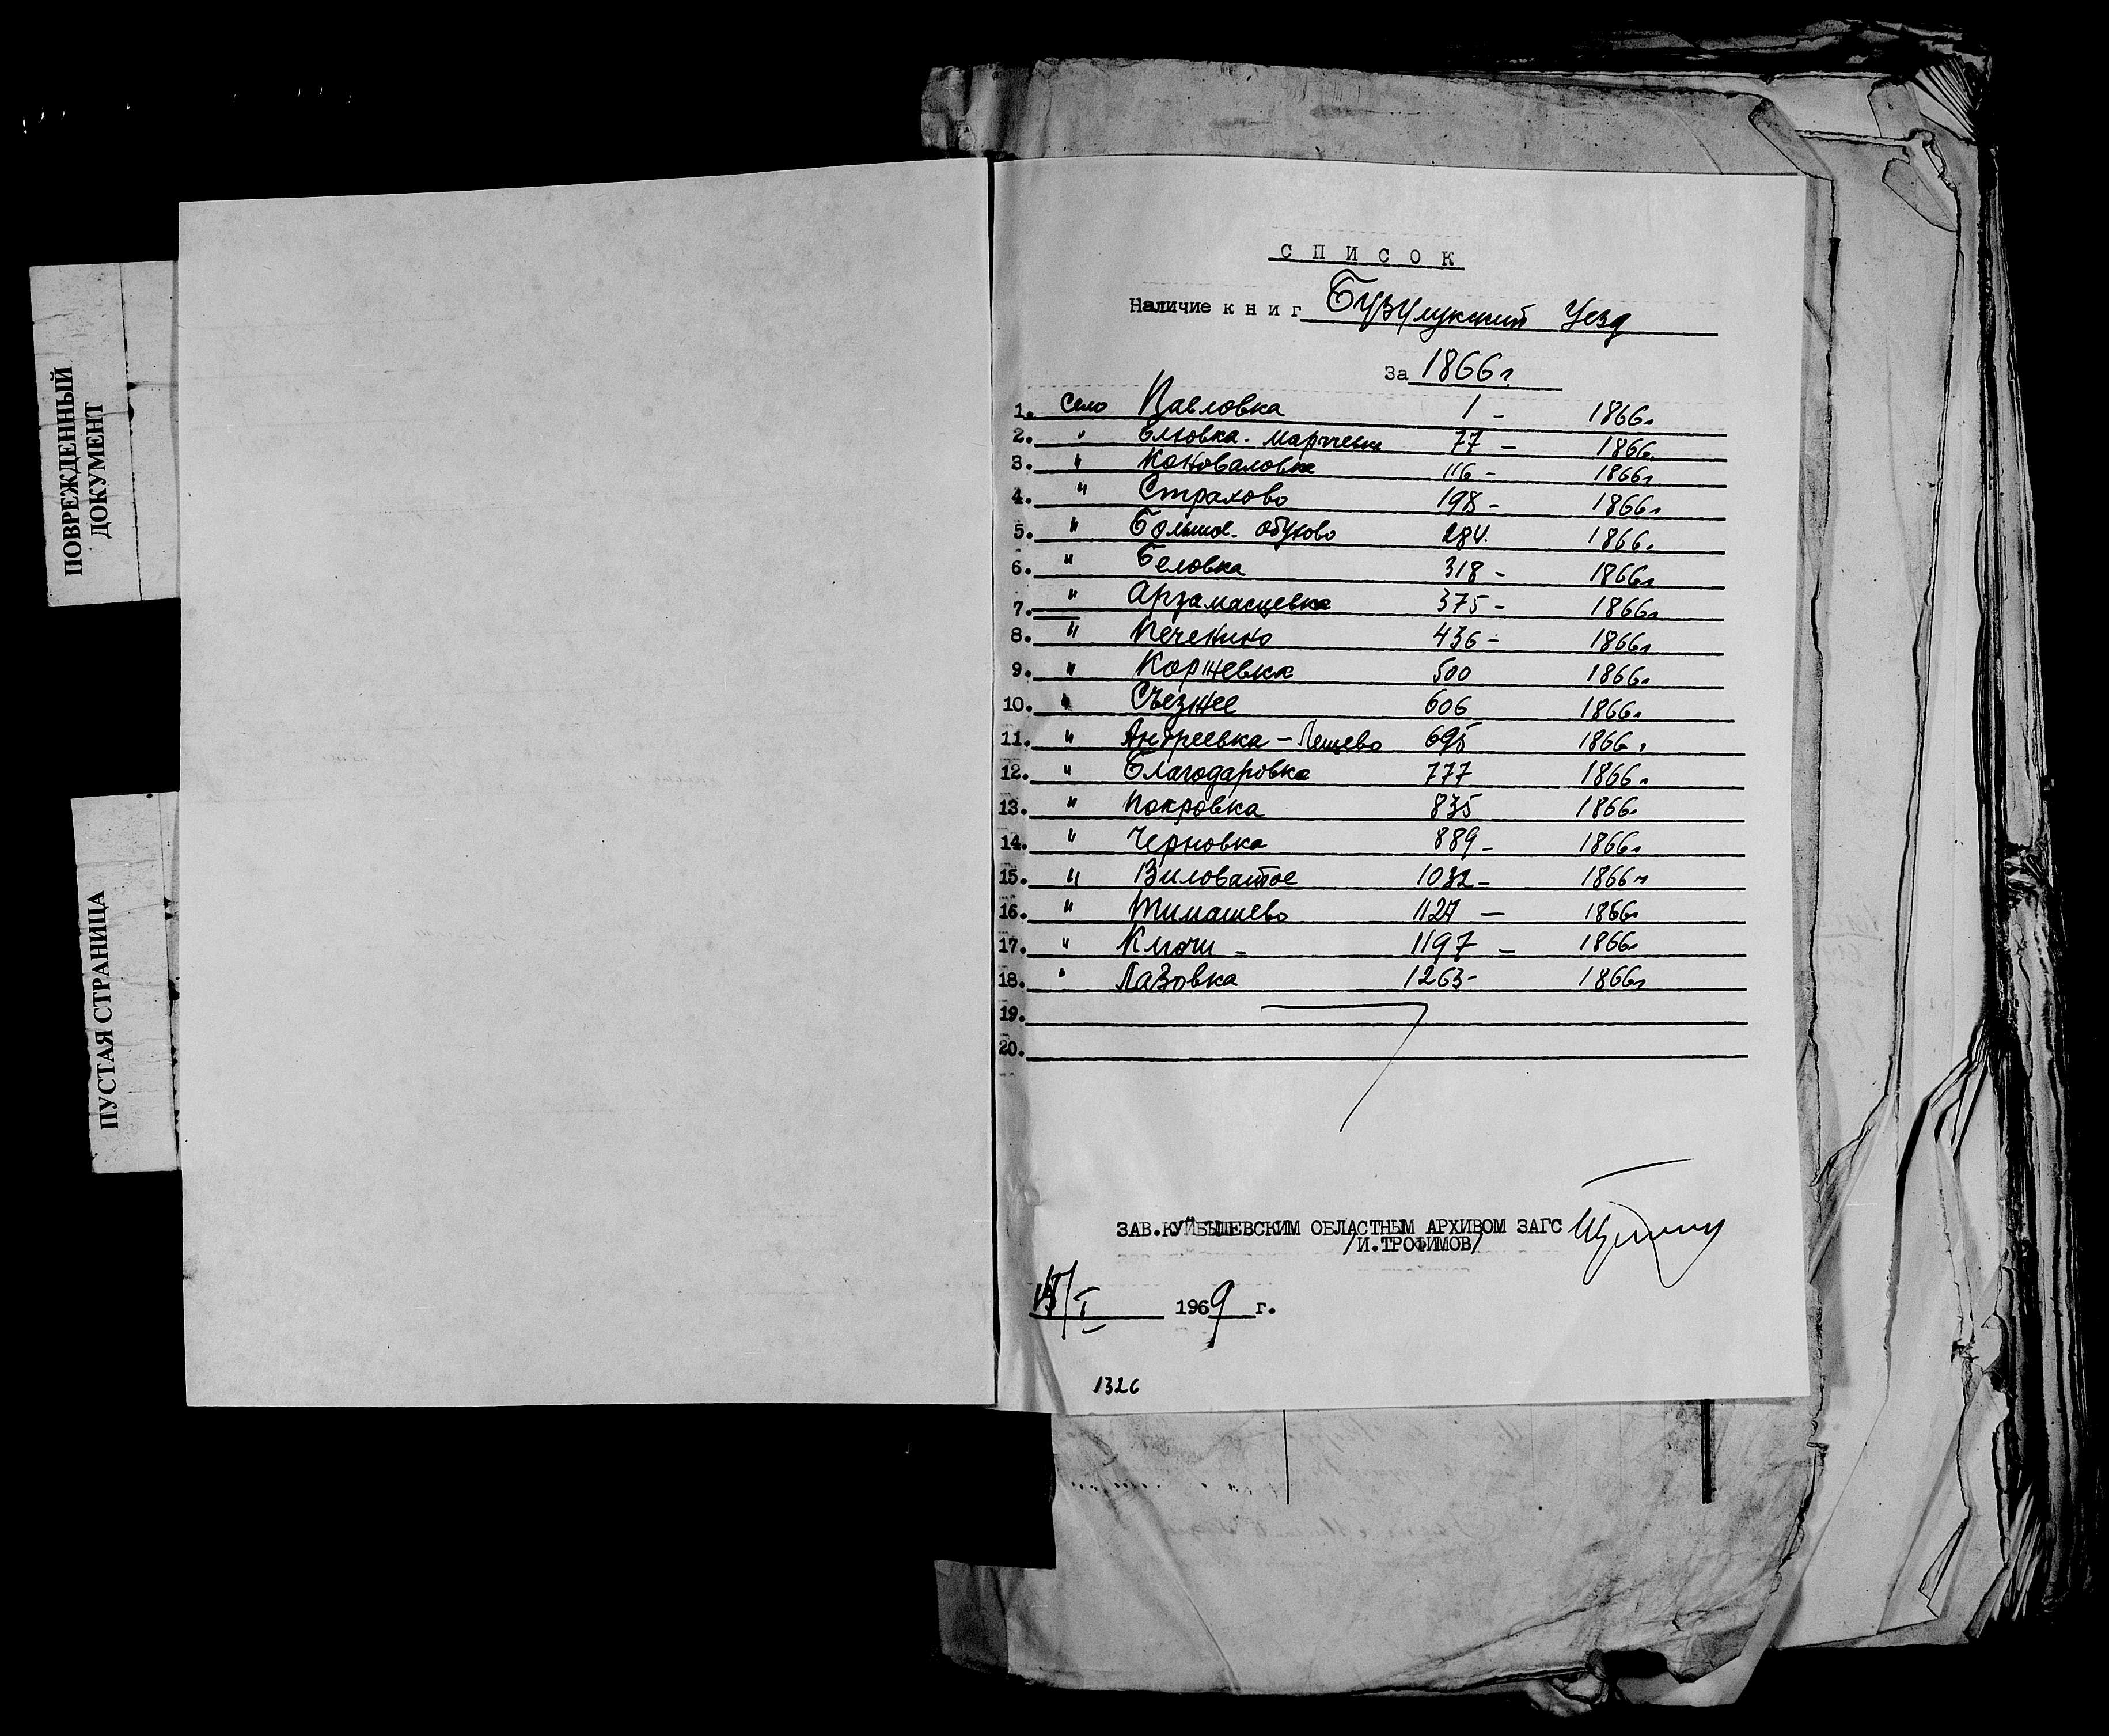 ПОВРЕЖДЕННЫЙ
ДОКУМЕНТ
ПУСТАЯ СТРАНИЦА
СПИСОК
Наличие книг Бузулукский Уезд
За 1866 г.
1. Село Павловка 1 - 1866г
2. " 77 - 1866г.
3. " Коноваловка 116 - 1866г
4. " Страхово 198 - 1866г
5. " Больше. Обухово 284. 1866г.
6. " Беловка 318 - 1866г
7. " Арзамасцевка 375 - 1866г
8. " Печенино 436 - 1866г
9. " Коржевка 500 1866г
10. " Съезжее 606 1866г
11. " Андреевка - Лещево 695 1866г
12. " Благодаровка 777 1866г
13. " Покровка 835 1866г
14. " Черновка 889 - 1866г
15. " Виловатое 1032 - 1866г
16. " Тимашево 1127 - 1866г
17. " Ключи - 1197 - 1866г
18. " Лазовка 1263 - 1866г
19.
20.
ЗАВ.КУЙБЫШЕВСКИМ ОБЛАСТНЫМ АРХИВОМ ЗАГС
/И.ТРОФИМОВ/
1969 г.
1326